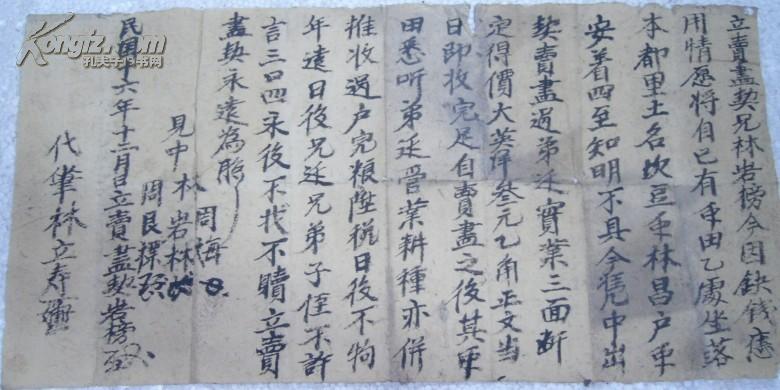 立賣盡契兄林岩榜今因缺錢應
用情愿將自己有氶田乙處坐落
本都里土名坎豆氶林昌户氶
安着四至知明不具今凭中出
契賣盡過弟廷實業三面断
定得價大英洋叁元乙角正文当
日即收完足自賣盡之後其氶
田悉听弟廷管業耕種亦併
推收過户完粮墮税日後不拘
年遠日後兄廷兄弟子侄不許
言三口四永後不找不贖立賣
盡契永遠為照
周海
見中林岩林
周良標
民國十六年十二月日立賣盡契岩榜
代筆林立寿
Kongfz.com
孔夫子旧书网